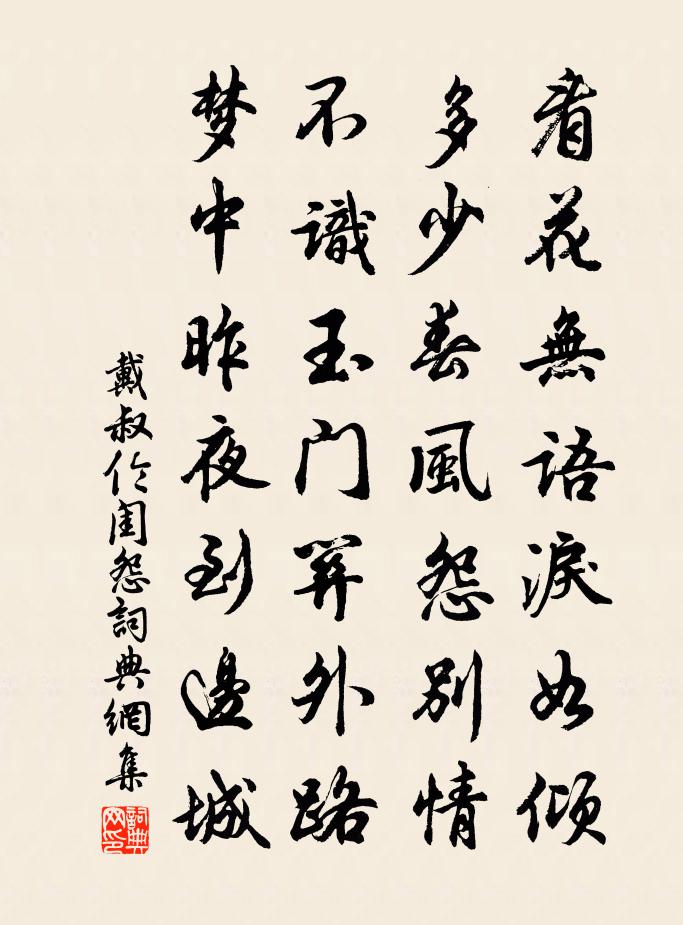 看花無語淚如傾
多少春風怨別情
不識玉门關外路
梦中昨夜到邊城
戴叔伦閨怨詞典網集
詞典网印